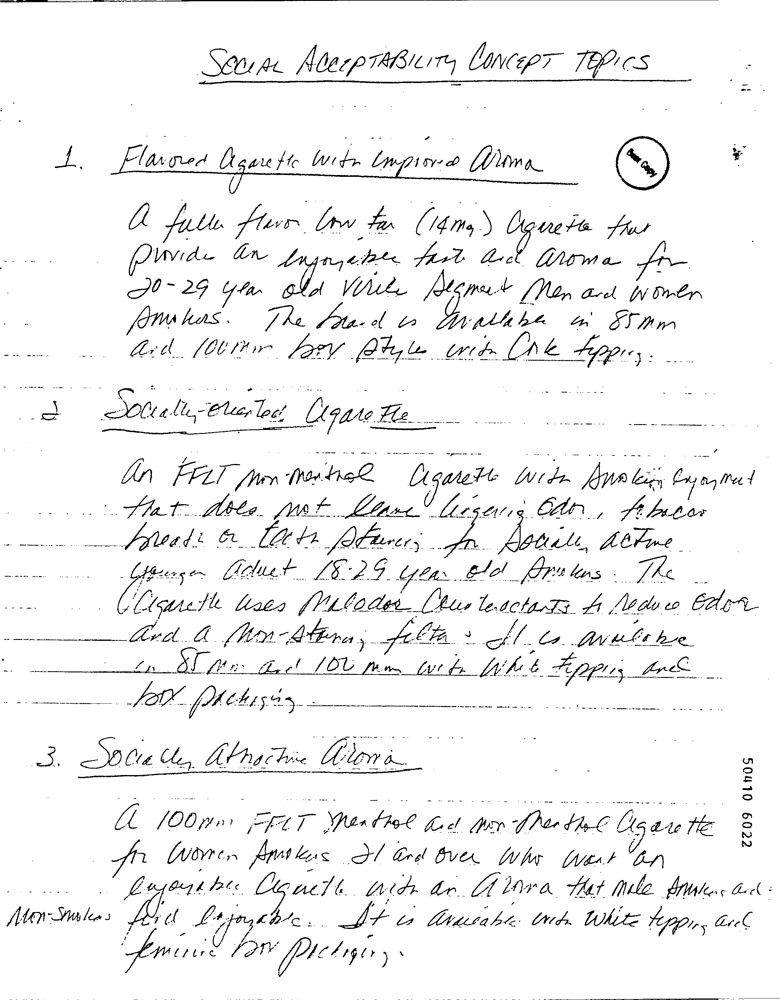 SOCIAL ACCEPTABILITY CONCEPT TOPICS
1. Flavored Cigarette with Improved Aroma
Best Copy
A fuller flavor low tar (14 mg.) Cigarette that
provide an enjoyable taste and aroma for
20-29 year old Virile Segment Men and Women
Smokers. The brand is available in 85 mm
and 100 mm box styles with Cork tipping.
2 Socially-oriented Cigarette
An FFLT non-menthol Cigarette with Smoking Enjoyment
that does not leave lingering odor, tobacco
breath or tooth staining for socially active
younger adult 18-29 year old Smokers. The
Cigarette uses Malodor Counteractants to reduce Odor
and a non-staining filter. It is available
in 85 mm and 100 mm with white tipping and
box packaging.
3. Socially Attractive Aroma
A 100 mm FFLT Menthol and non-Menthol Cigarette
for Women Smokers 21 and over who want an
enjoyable Cigarette with an Aroma that male Smokers and
Non-Smokers find enjoyable. It is available with White tipping and
feminine box packaging.
50410 6022